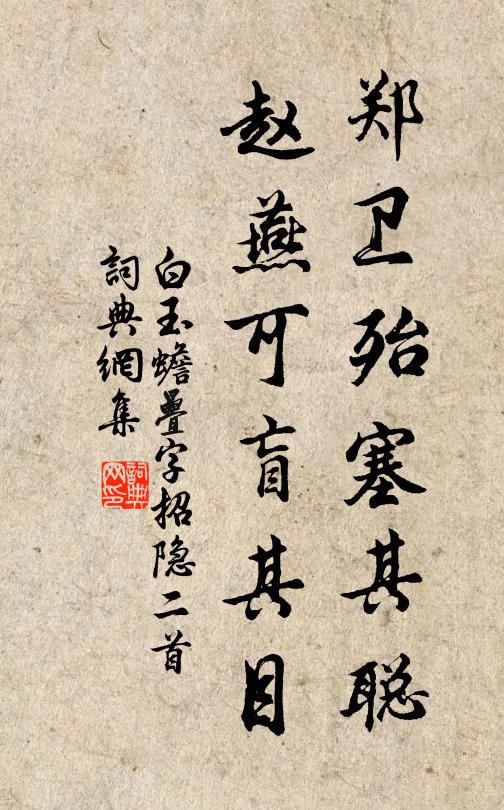 郑卫殆塞其聪
赵燕可盲其目
白玉蟾叠字招隐二首
詞典網集
詞典网印